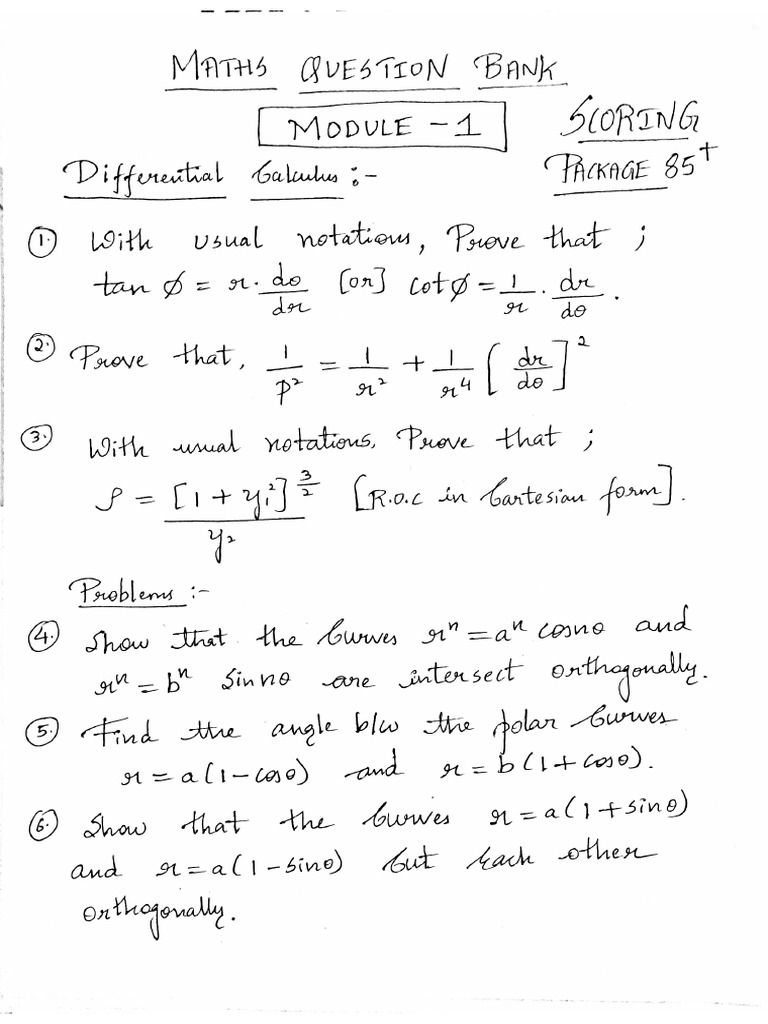 MATHS QUESTION BANK
MODULE - 1
SCORING
PACKAGE 85+
Differential Calculus :-
1. With usual notations, Prove that ;
tan φ = r · dθ/dr [or] cot φ = 1/r · dr/dθ .
2. Prove that, 1/p² = 1/r² + 1/r⁴ [dr/dθ]²
3. With usual notations, Prove that ;
ρ = [1 + y₁²]^(3/2) / y₂ [R.O.C in Cartesian form].
Problems :-
4. Show that the Curves rⁿ = aⁿ cosnθ and
rⁿ = bⁿ Sin nθ are intersect orthogonally.
5. Find the angle b/w the polar Curves
r = a(1 - cosθ) and r = b(1 + cosθ).
6. Show that the Curves r = a(1 + sinθ)
and r = a(1 - sinθ) Cut Each other
orthogonally.